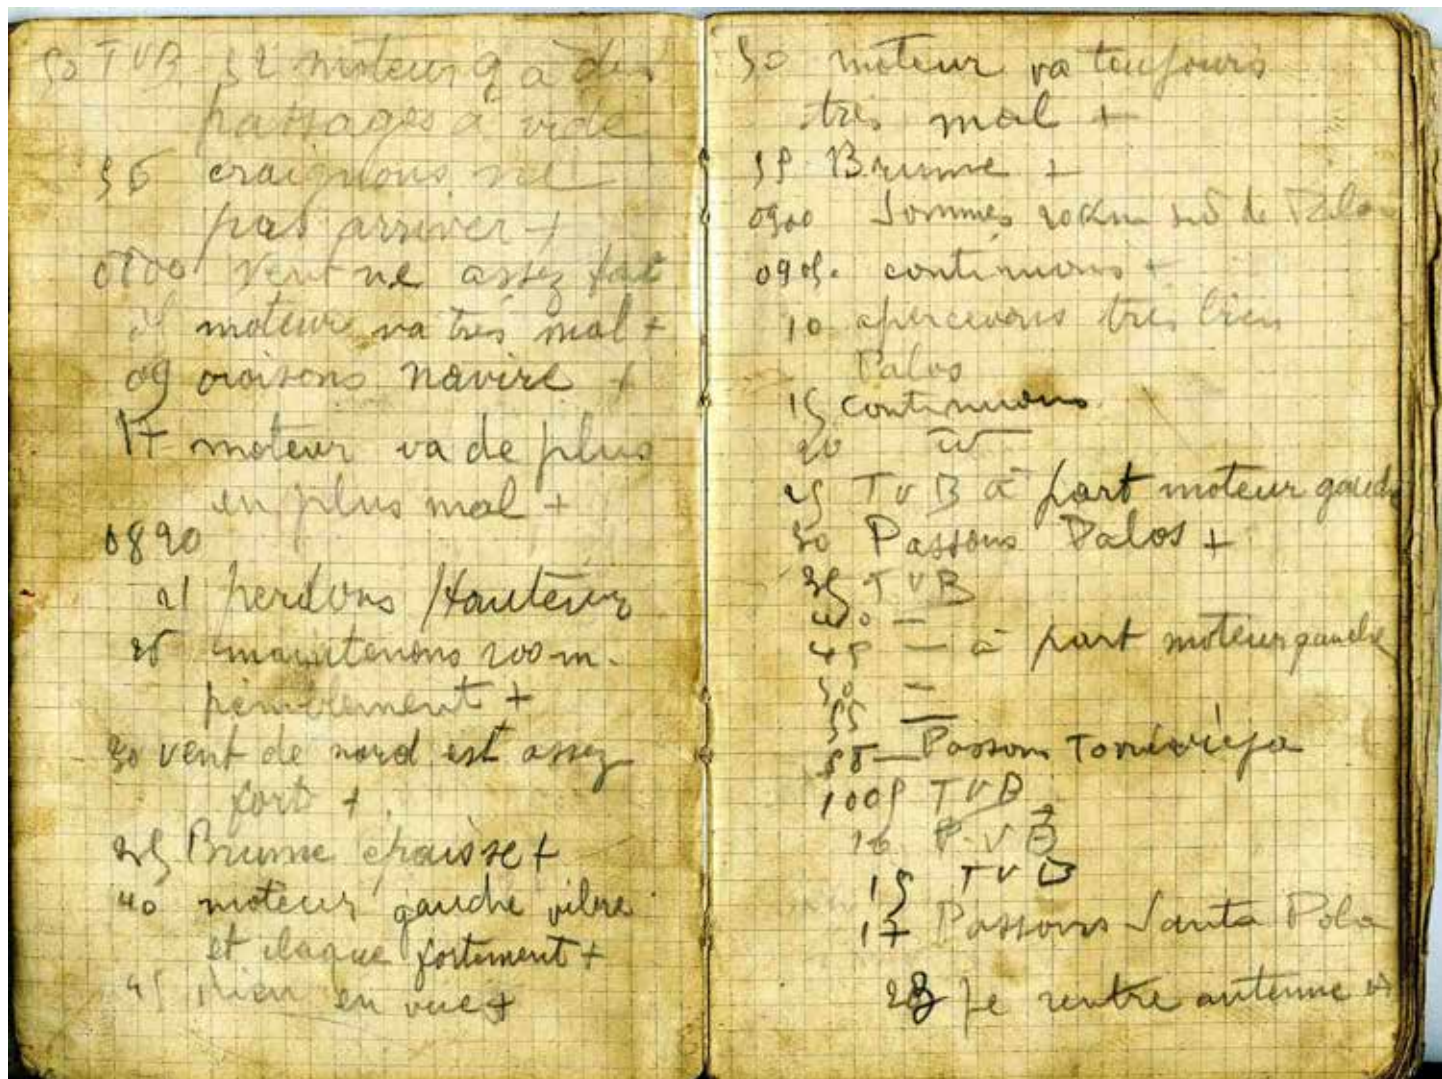 50 TVB 52 moteur g a des
passages à vide
56 craignons ne
pas arriver +
0800 vent ne assez fort
moteur va très mal +
09 croisons navire +
17 moteur va de plus
en plus mal +
0820
21 perdons Hauteur
25 maintenons 200 m.
péniblement +
30 vent de nord est assez
fort +
Brume épaisse +
40 moteur gauche vibre
et claque fortement +
45 rien en vue +
50 moteur va toujours
très mal +
55 Brume +
0900 Sommes 20Km sud de Palos
0905. continuons +
10 apercevons très bien
Palos
15 continuons
20
25 TVB à part moteur gauche
30 Passons Palos +
35 TVB
40 —
45 — à part moteur gauche
50 —
55 —
58 — Passons Torrevieja
1005 TVB
16 P.V.B
15 TVB
17 Passons Santa Pola
28 je rentre antenne